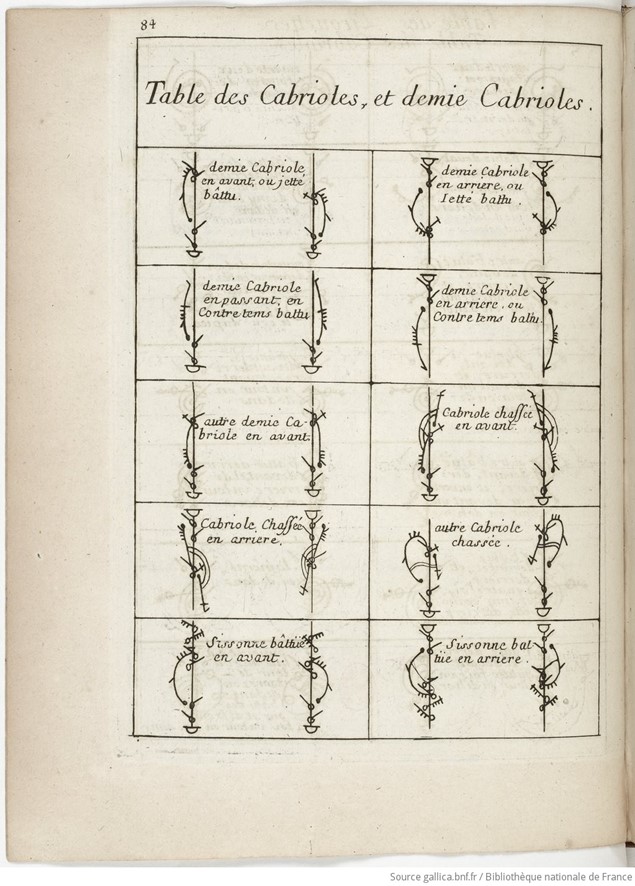 84
Table des Cabrioles, et demie Cabrioles.
demie Cabriole
en avant, ou jetté
bâttu.
demie Cabriole
en arriere, ou
Ietté battu.
demie Cabriole
en passant, en
Contretems battu
demie Cabriole
en arriere, ou
Contretems battu.
autre demie Ca-
briole en avant.
Cabriole chassée
en avant.
Cabriole Chassée
en arriere.
autre Cabriole
chassée.
Sissonne bâttüe
en avant.
Sissonne bat-
tüe en arriere.
Source gallica.bnf.fr / Bibliothèque nationale de France